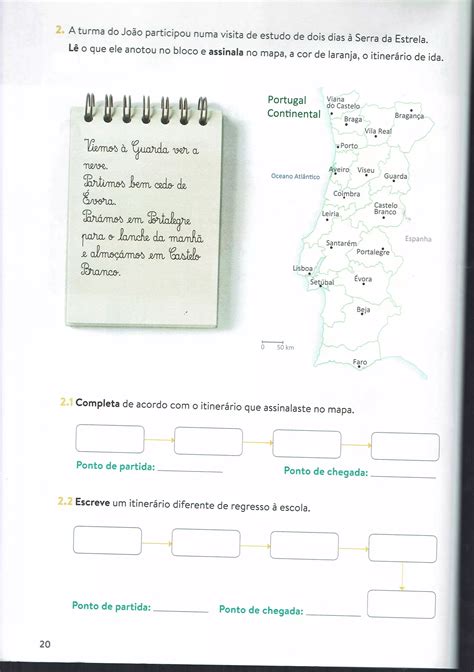 2. A turma do João participou numa visita de estudo de dois dias à Serra da Estrela.
Lê o que ele anotou no bloco e assinala no mapa, a cor de laranja, o itinerário de ida.
Viemos à Guarda ver a
neve.
Partimos bem cedo de
Évora.
Parámos em Portalegre
para o lanche da manhã
e almoçámos em Castelo
Branco.
Portugal
Continental
Viana
do Castelo
Bragança
Braga
Vila Real
Porto
Oceano Atlântico
Aveiro
Viseu
Guarda
Coimbra
Castelo
Branco
Leiria
Espanha
Santarém
Portalegre
Lisboa
Setúbal
Évora
Beja
0 50 km
Faro
2.1 Completa de acordo com o itinerário que assinalaste no mapa.
Ponto de partida: ____________ Ponto de chegada: ____________
2.2 Escreve um itinerário diferente de regresso à escola.
Ponto de partida: ____________ Ponto de chegada: ____________
20